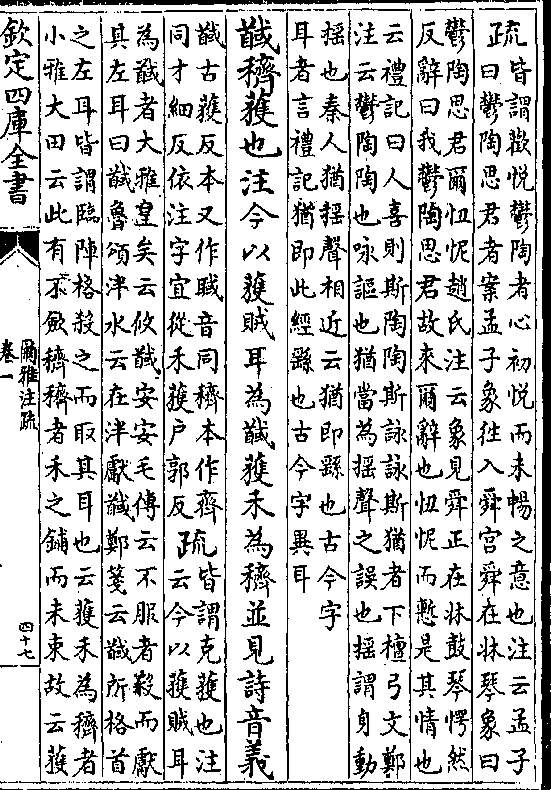 疏皆謂歡悦鬱陶者心初悦而未暢之意也注云孟子
曰鬱陶思君者案孟子象徃入舜宫舜在牀琴象曰
鬱陶思君爾忸怩趙氏注云象見舜正在牀鼓琴愕然
反辭曰我鬱陶思君故來爾辭也忸怩而慙是其情也
云禮記曰人喜則斯陶陶斯詠詠斯猶者下檀弓文鄭
注云鬱陶陶也咏謳也猶當為揺聲之誤也揺謂身動
揺也秦人猶揺聲相近云猶即繇也古今字
耳者言禮記猶即此經繇也古今字異耳
馘穧獲也注今以獲賊耳為馘獲禾為穧並見詩音義
馘古獲反本又作聝音同穧本作齊
同才細反依注字宜從禾獲户郭反
疏皆謂克獲也注
云今以獲賊耳
為馘者大雅皇矣云攸馘安安毛傳云不服者殺而獻
其左耳曰馘魯頌泮水云在泮獻馘鄭箋云馘所格首
之左耳皆謂臨陣格殺之而取其耳也云獲禾為穧者
小雅大田云此有不歛穧穧者禾之鋪而未束故云獲
欽定四庫全書
爾雅注疏
卷一
四十七